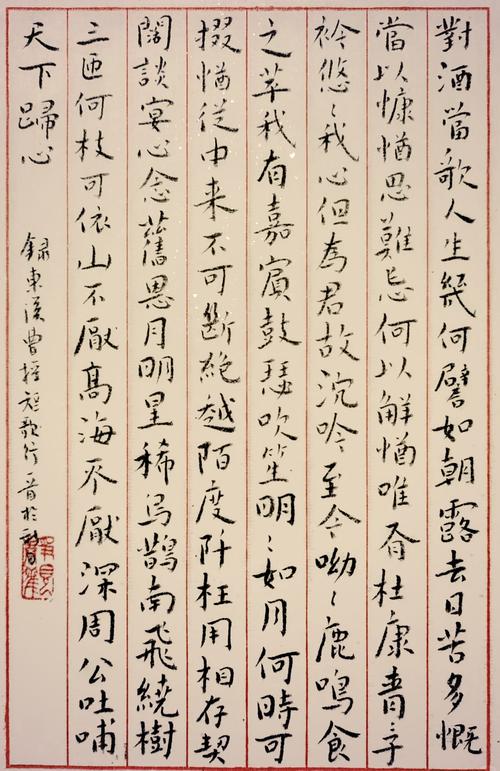 對酒當歌人生幾何譬如朝露去日苦多慨
當以慷思難忘何以解唯有杜康青子
衿悠〻我心但為君故沉吟至今呦〻鹿鳴食
之苹我有嘉賓鼓瑟吹笙明〻如月何時可
掇從中来不可斷絶越陌度阡枉用相存契
闊談宴心念舊恩月明星稀烏鵲南飛繞樹
三匝何枝可依山不厭高海不厭深周公吐哺
天下歸心
録東漢曹操短歌行